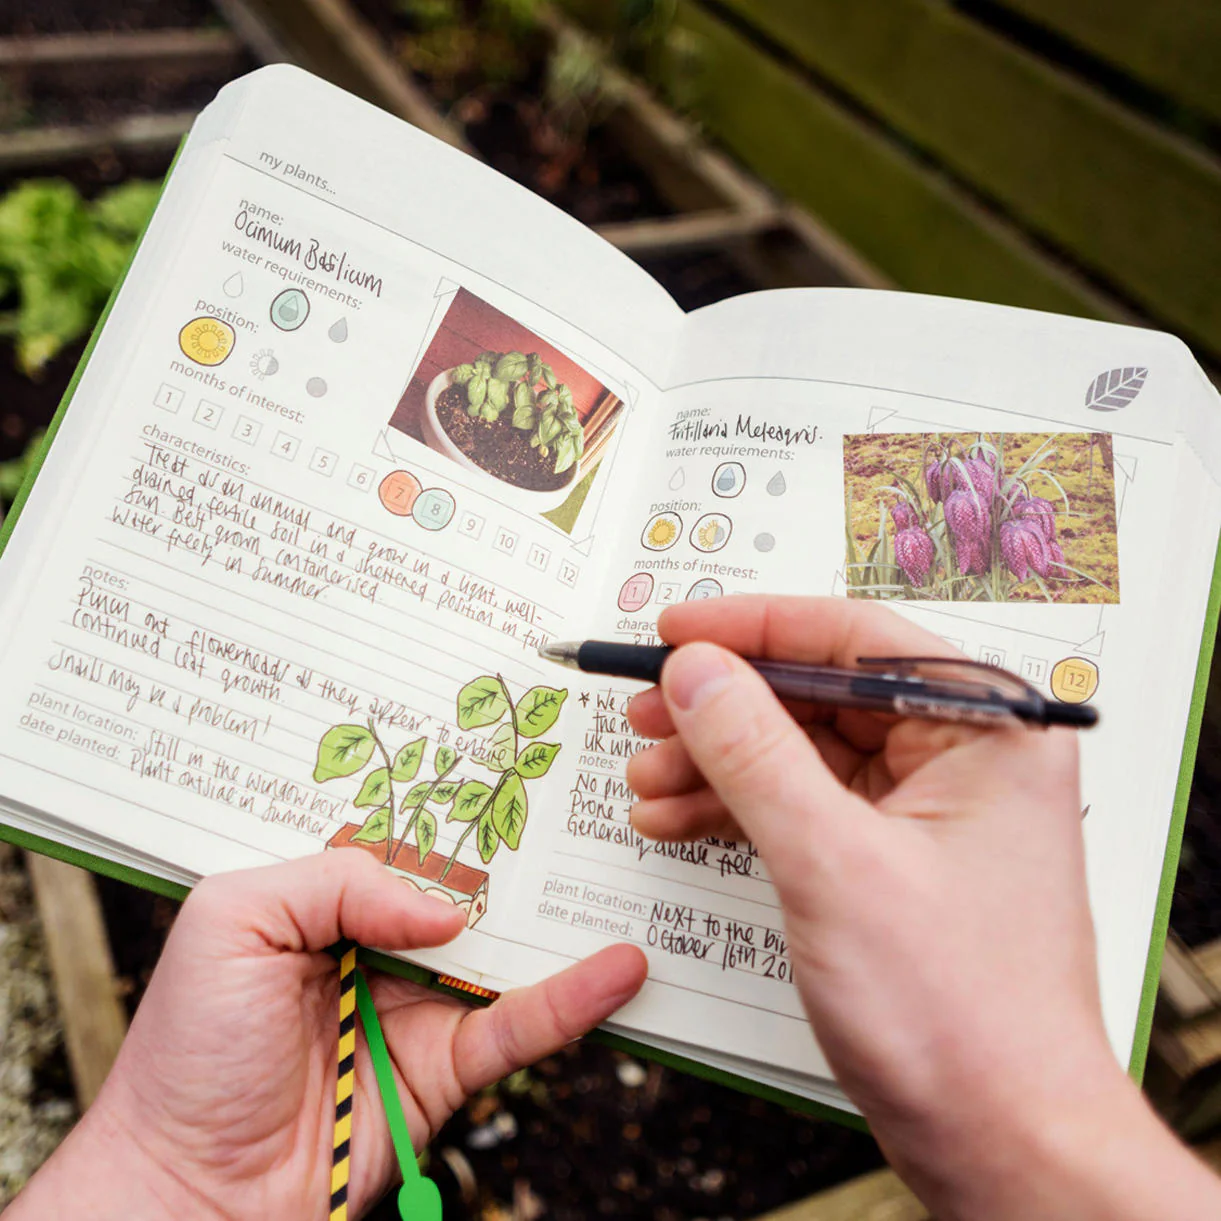 my plants...
name:
Ocimum Basilicum
water requirements:
position:
months of interest:
1 2 3 4 5 6 7 8 9 10 11 12
characteristics:
Treat as an annual and grow in a light, well-
drained, fertile soil in a sheltered position in full
sun. Best grown containerised.
Water freely in Summer.
notes:
Pinch out flowerheads as they appear to ensure
continued leaf growth.
Snails may be a problem!
plant location: Still in the window box!
date planted: Plant outside in Summer
name:
Fritillaria Meleagris.
water requirements:
position:
months of interest:
1 2 3
10 11 12
charac
* We
the
UK where
notes:
No
Prone
Generally disease free.
plant location: Next to the
date planted: October 16th 201